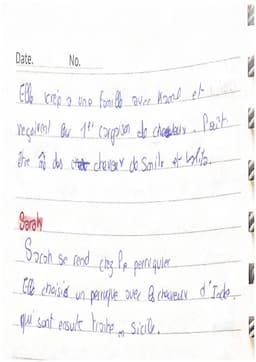 Date. No.
Elle crép a une famille avec Kamel et
reçoivent au 1er cargaison de cheveux. Peut
être né des cheveux de Smita et
Sarah
Sarah se rend chez le perruquier
Elle choisis un perruque avec les cheveux d'Inde.
qui sont ensuite traité en Sicile.